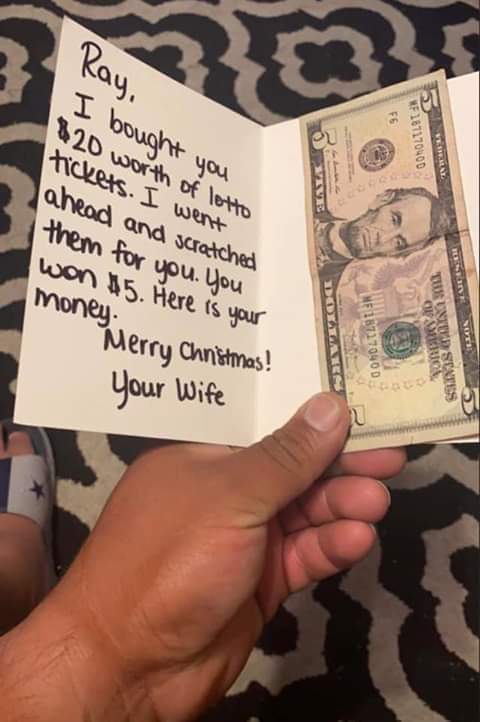 Ray,
I bought you
$20 worth of lotto
tickets. I went
ahead and scratched
them for you. You
won $5. Here is your
money.
Merry Christmas!
Your Wife
FEDERAL RESERVE NOTE
THE UNITED STATES
OF AMERICA
F6
MF18717040D
MF18717040D
FIVE DOLLARS
5
5
5